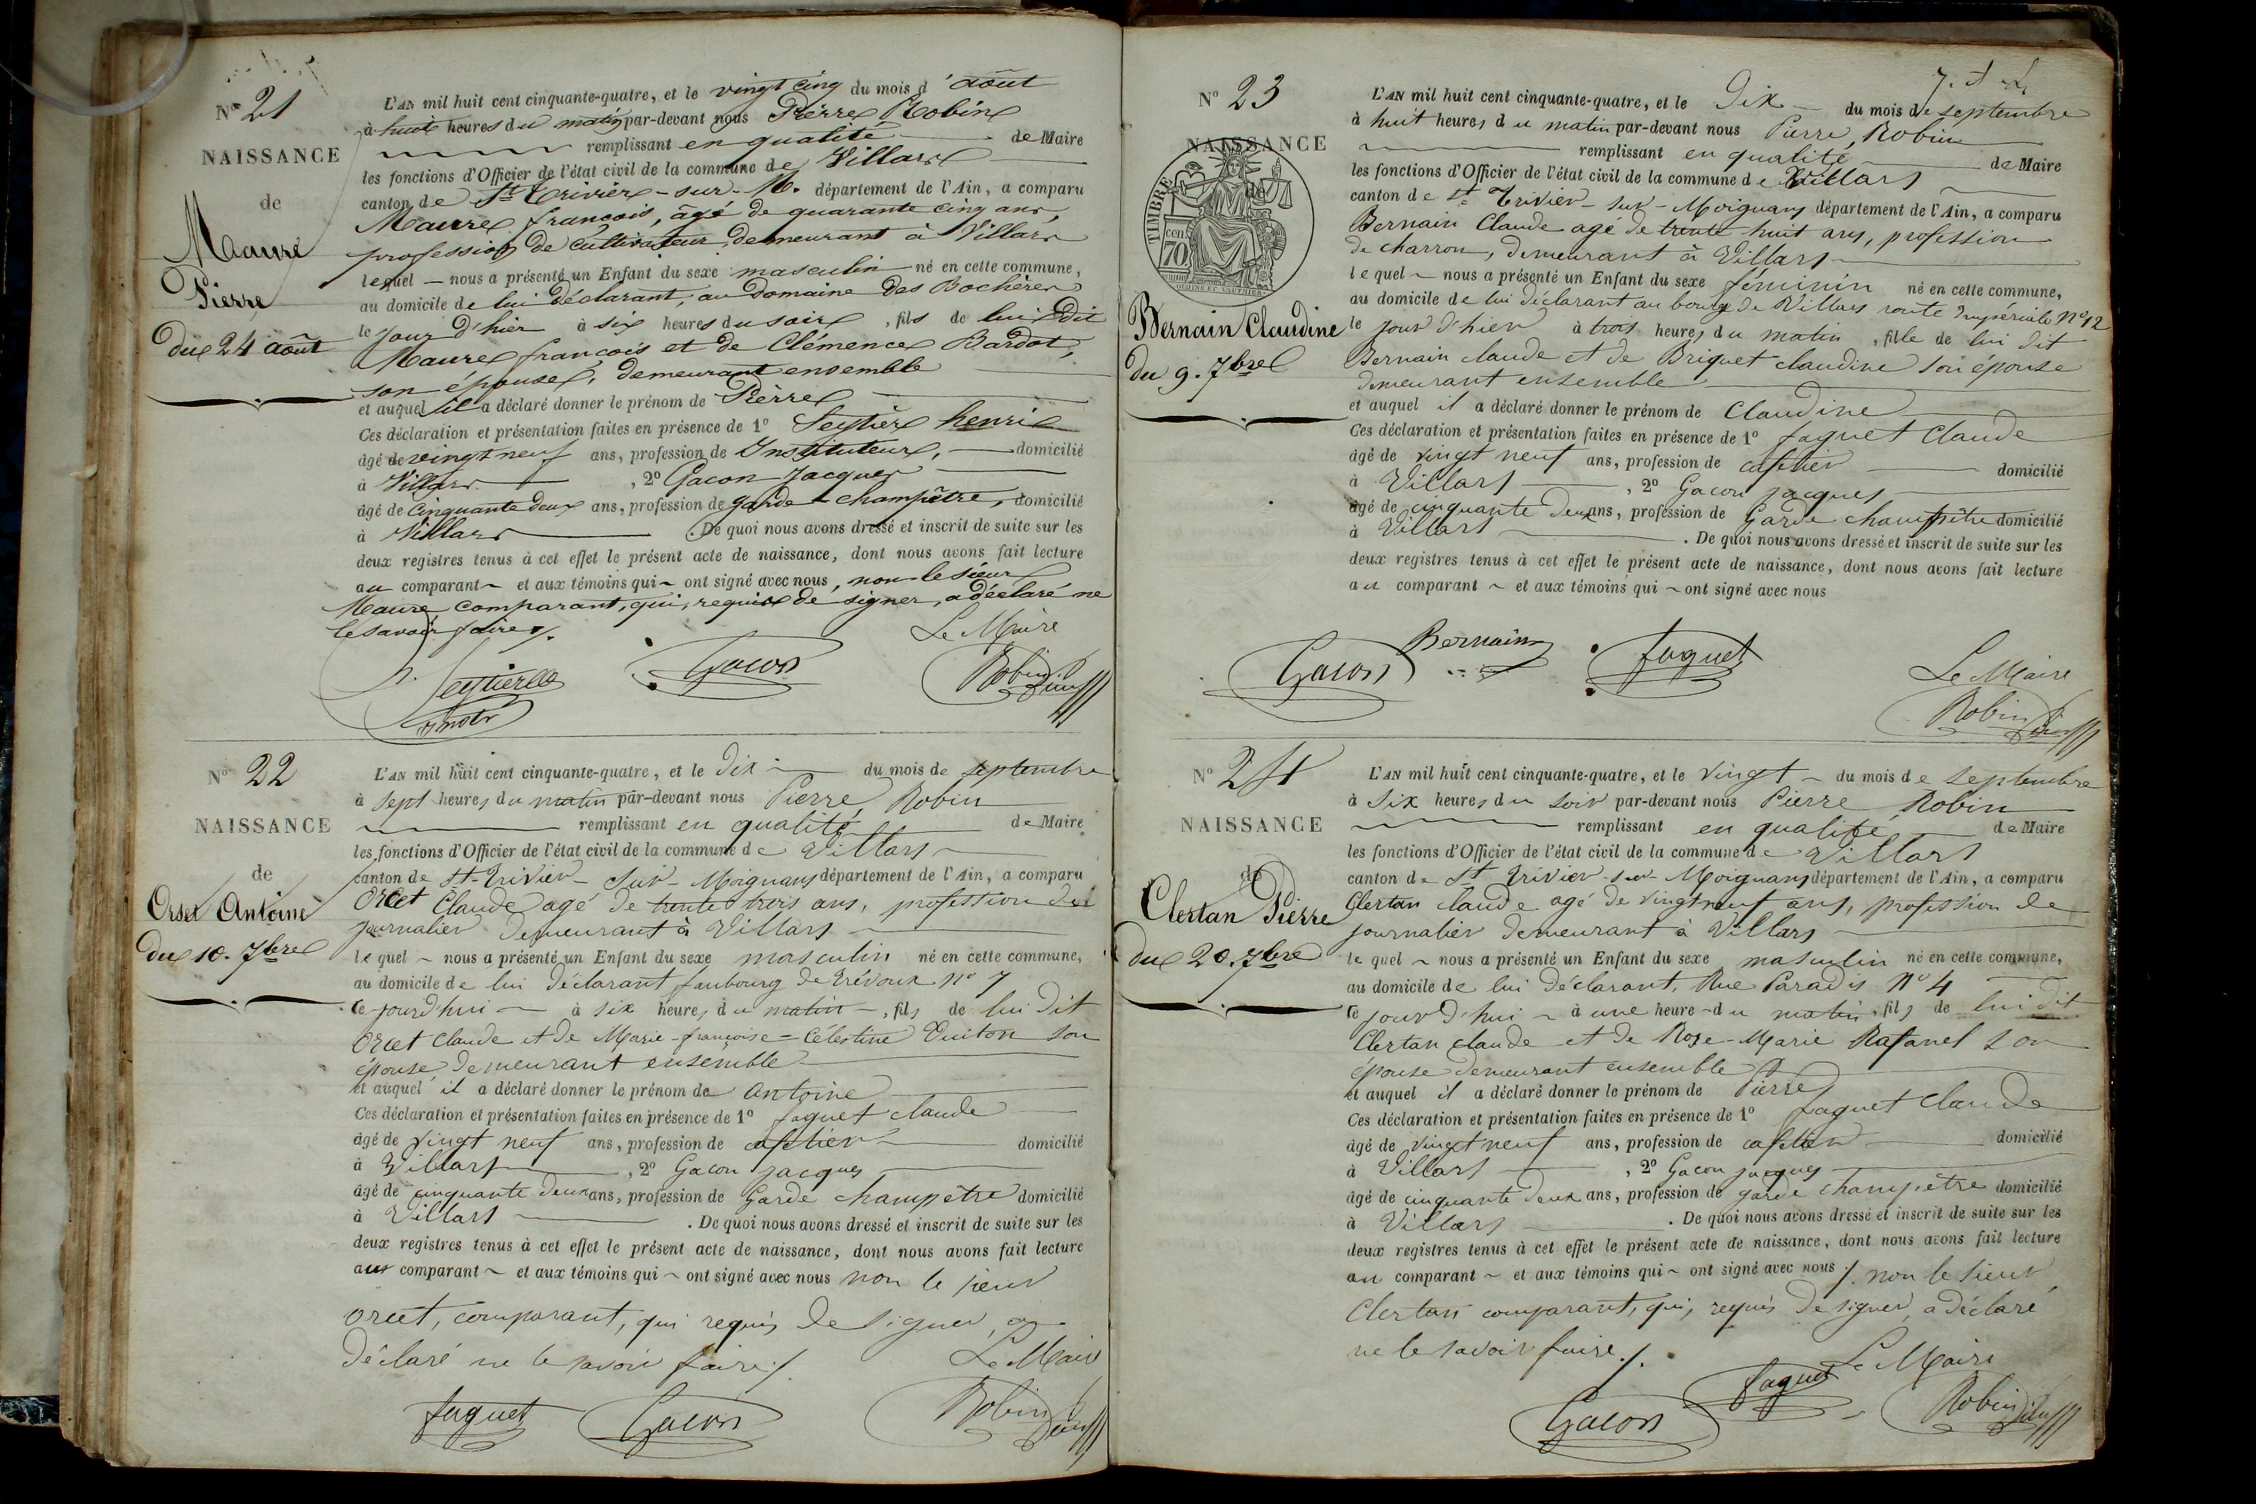 N° 21
NAISSANCE
de
Maure
Pierre
du 24 août
L'AN mil huit cent cinquante-quatre, et le vingt cinq du mois d'août
à huit heures du matin par-devant nous Pierre Robin
remplissant en qualité de Maire
les fonctions d'Officier de l'état civil de la commune de Villars
canton de St Trivier-sur-M. département de l'Ain, a comparu
Maure françois, âgé de quarante cinq ans,
profession de cultivateur, demeurant à Villars
lequel nous a présenté un Enfant du sexe masculin né en cette commune,
au domicile de lui déclarant, au domaine des Bochères
le jour d'hier à six heures du soir, fils de lui dit
Maure françois et de Clémence Bardot,
son épouse, demeurant ensemble
et auquel il a déclaré donner le prénom de Pierre
Ces déclaration et présentation faites en présence de 1° Seytier henri
âgé de vingt neuf ans, profession de Instituteur, domicilié
à Villars, 2° Gacon Jacques
âgé de cinquante deux ans, profession de garde-champêtre, domicilié
à Villars. De quoi nous avons dressé et inscrit de suite sur les
deux registres tenus à cet effet le présent acte de naissance, dont nous avons fait lecture
au comparant et aux témoins qui ont signé avec nous, non le sieur
Maure comparant, qui, requis de signer, a déclaré ne
le savoir faire.
Le Maire
Seytier
Gacon
Robin
N° 22
NAISSANCE
de
Orset Antoine
du 10. 7bre
L'AN mil huit cent cinquante-quatre, et le dix du mois de septembre
à sept heures du matin par-devant nous Pierre Robin
remplissant en qualité de Maire
les fonctions d'Officier de l'état civil de la commune de Villars
canton de St Trivier-sur-Moignans département de l'Ain, a comparu
Orcet Claude agé de trente trois ans, profession de
journalier demeurant à Villars
lequel nous a présenté un Enfant du sexe masculin né en cette commune,
au domicile de lui déclarant faubourg de Trévoux n° 7
ce jourd'hui à six heures du matin, fils de lui dit
Orcet claude et de Marie-françoise=Célestine Guiton son
épouse demeurant ensemble
et auquel il a déclaré donner le prénom de antoine
Ces déclaration et présentation faites en présence de 1° faguet claude
âgé de vingt neuf ans, profession de cafetier domicilié
à Villars, 2° Gacon jacques
âgé de cinquante deux ans, profession de Garde champêtre domicilié
à Villars. De quoi nous avons dressé et inscrit de suite sur les
deux registres tenus à cet effet le présent acte de naissance, dont nous avons fait lecture
au comparant et aux témoins qui ont signé avec nous non le sieur
orcet, comparant, qui requis de signer, a
déclaré ne le savoir faire./.
Le Maire
faguet
Gacon
Robin
N° 23
NAISSANCE
de
TIMBRE
cen. 70
Bernain Claudine
du 9. 7bre
L'AN mil huit cent cinquante-quatre, et le Dix du mois de septembre
à huit heures du matin par-devant nous Pierre Robin
remplissant en qualité de Maire
les fonctions d'Officier de l'état civil de la commune de Villars
canton de St Trivier-sur-Moignans département de l'Ain, a comparu
Bernain Claude agé de trente huit ans, profession
de charron, demeurant à Villars
lequel nous a présenté un Enfant du sexe féminin né en cette commune,
au domicile de lui déclarant au bourg de Villars route impériale N° 12
le jour d'hier à trois heures du matin, fille de lui dit
Bernain claude et de Briquet claudine son épouse
demeurant ensemble
et auquel il a déclaré donner le prénom de Claudine
Ces déclaration et présentation faites en présence de 1° faguet Claude
âgé de vingt neuf ans, profession de cafetier domicilié
à Villars, 2° Gacon jacques
âgé de cinquante deux ans, profession de Garde champêtre domicilié
à Villars. De quoi nous avons dressé et inscrit de suite sur les
deux registres tenus à cet effet le présent acte de naissance, dont nous avons fait lecture
au comparant et aux témoins qui ont signé avec nous
Bernain
Gacon
faguet
Le Maire
Robin
N° 24
NAISSANCE
de
Clertan Pierre
du 20. 7bre
L'AN mil huit cent cinquante-quatre, et le vingt du mois de septembre
à six heures du soir par-devant nous Pierre Robin
remplissant en qualité de Maire
les fonctions d'Officier de l'état civil de la commune de Villars
canton de St Trivier-sur-Moignans département de l'Ain, a comparu
Clertan claude agé de vingt neuf ans, profession de
journalier demeurant à Villars
lequel nous a présenté un Enfant du sexe masculin né en cette commune,
au domicile de lui déclarant, Rue Paradis N° 4
ce jour d'hui à une heure du matin, fils de lui dit
Clertan claude et de Rose-Marie Rafanel son
épouse demeurant ensemble
et auquel il a déclaré donner le prénom de Pierre
Ces déclaration et présentation faites en présence de 1° faguet Claude
âgé de vingt neuf ans, profession de cafetier domicilié
à Villars, 2° Gacon jacques
âgé de cinquante deux ans, profession de garde champêtre domicilié
à Villars. De quoi nous avons dressé et inscrit de suite sur les
deux registres tenus à cet effet le présent acte de naissance, dont nous avons fait lecture
au comparant et aux témoins qui ont signé avec nous ./. non le sieur
Clertan comparant, qui, requis de signer, a déclaré
ne le savoir faire./.
Le Maire
faguet
Gacon
Robin